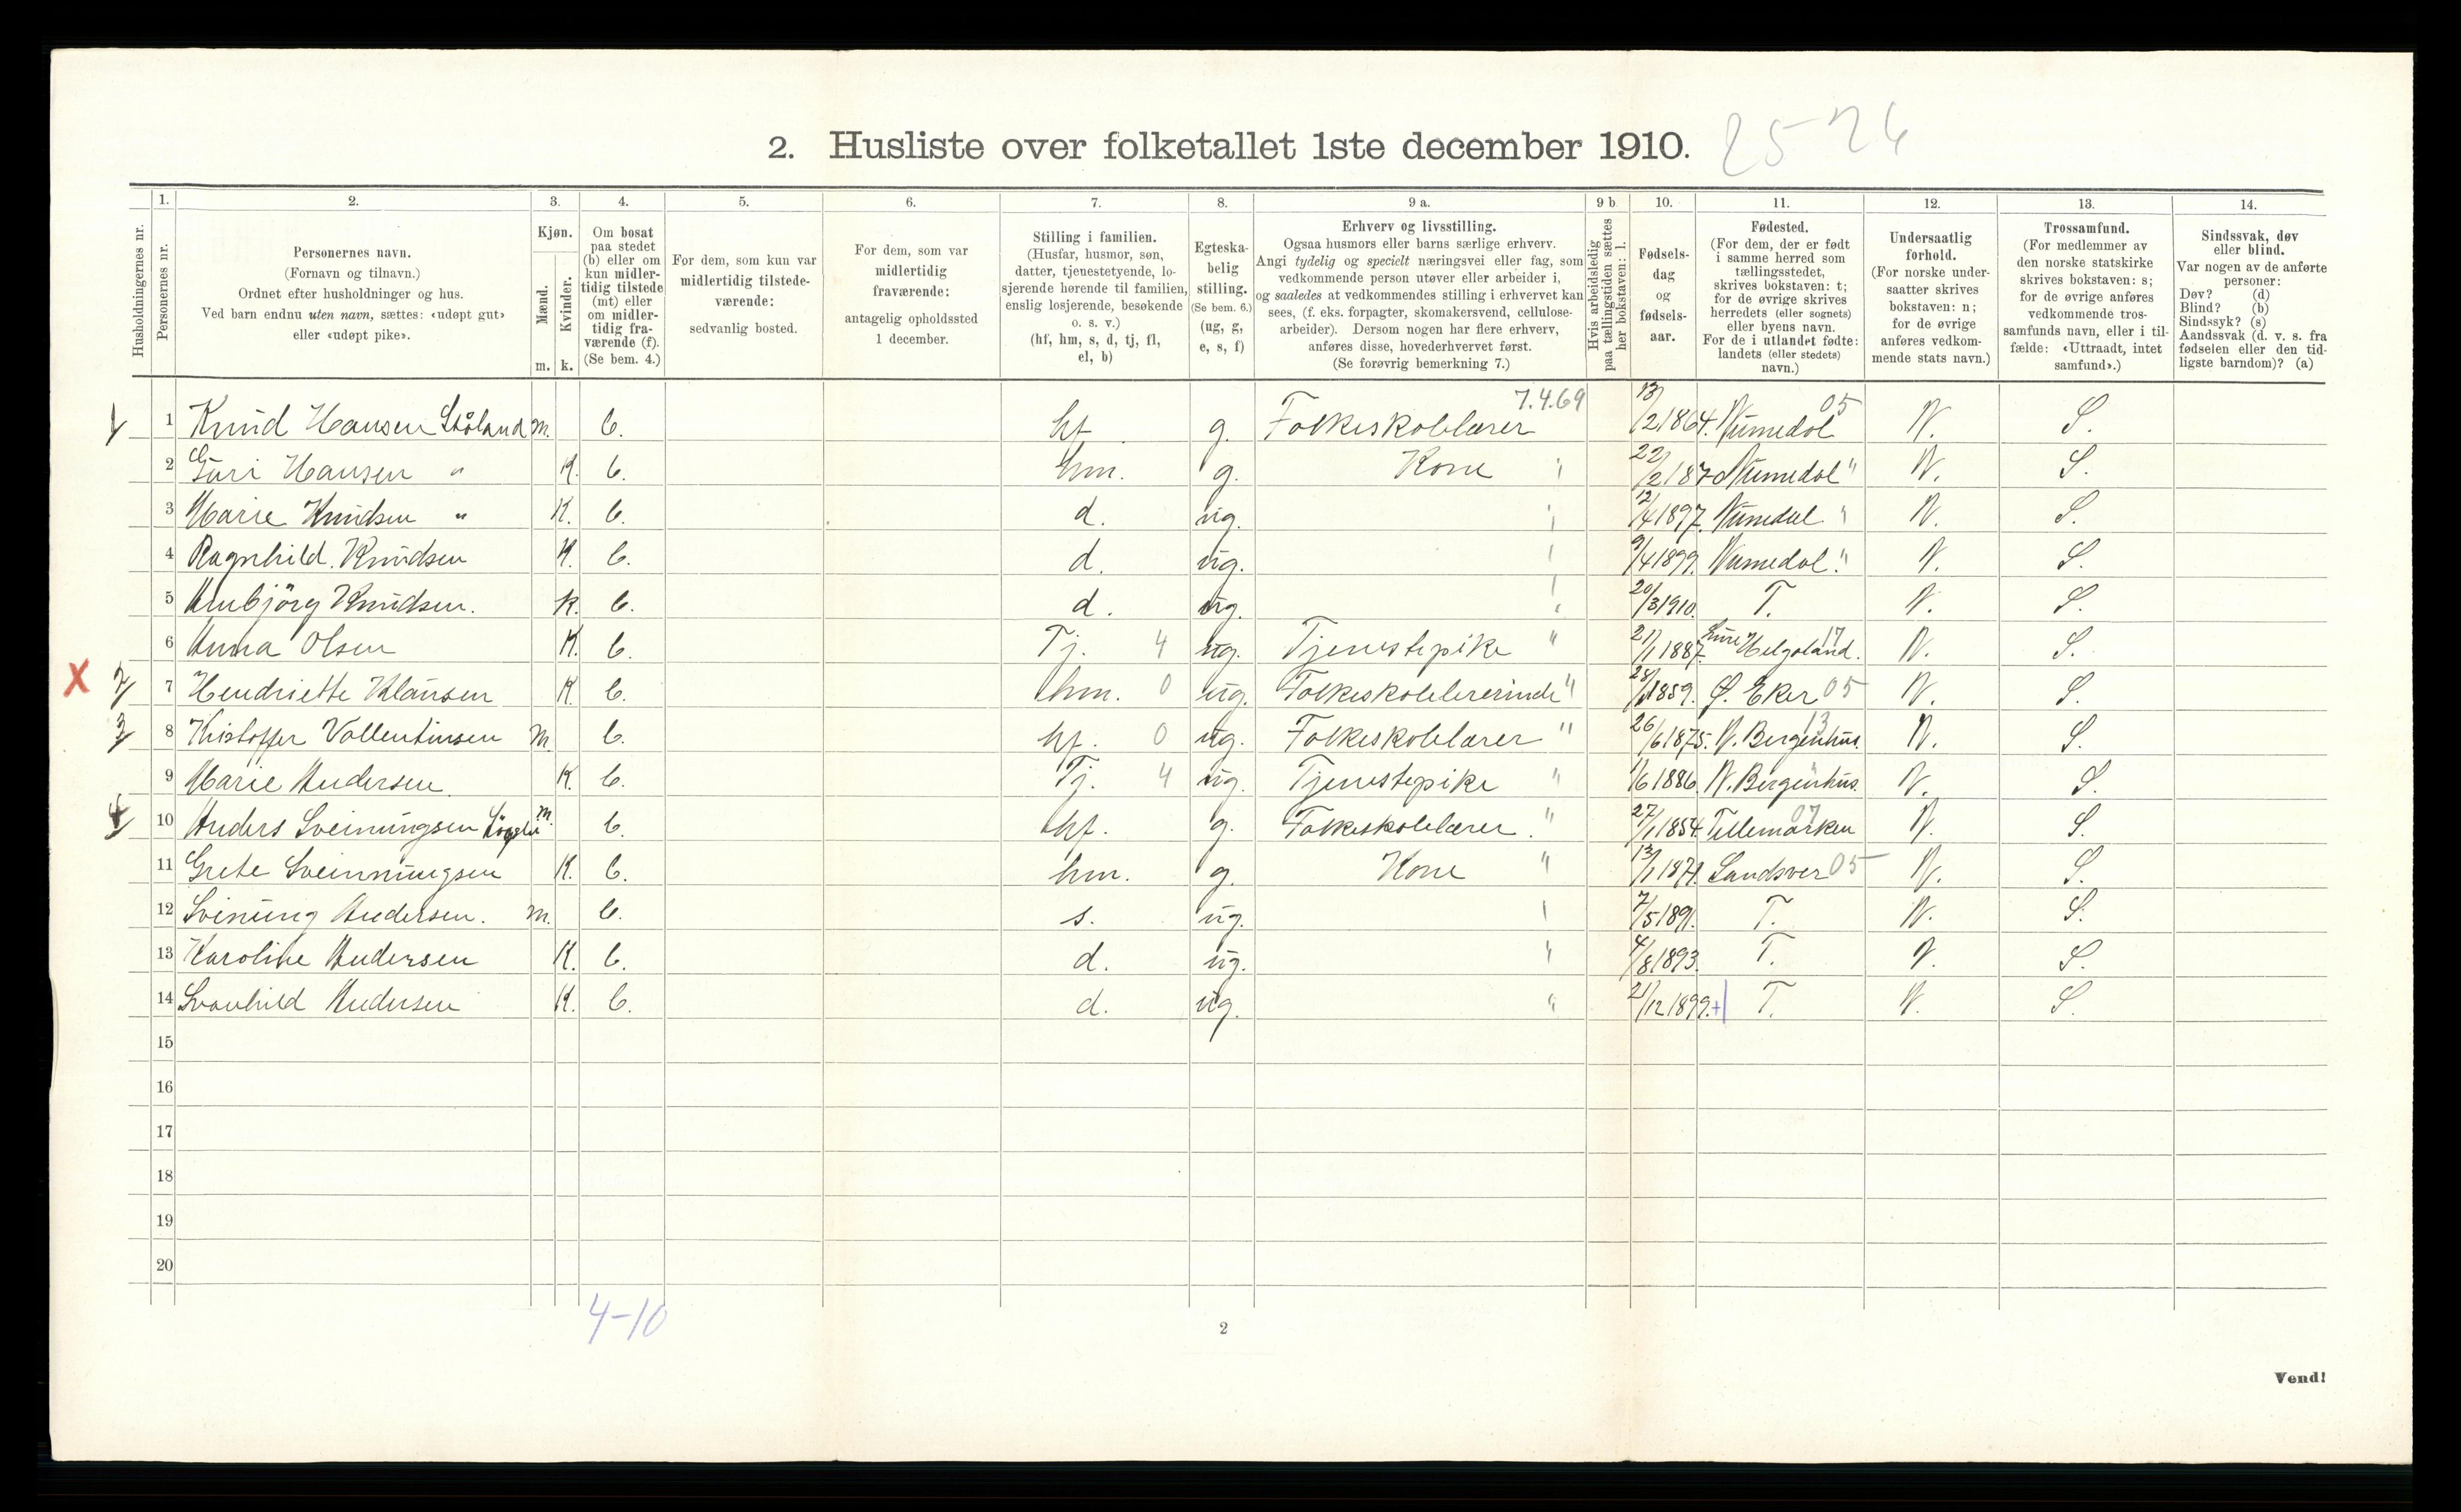 2. Husliste over folketallet 1ste december 1910. 25 26
1. 2. 3. 4. 5. 6. 7. 8. 9 a. 9 b 10. 11. 12. 13. 14.
Husholdningernes nr.
Personernes nr.
Personernes navn.
(Fornavn og tilnavn.)
Ordnet efter husholdninger og hus.
Ved barn endnu uten navn, sættes: «udøpt gut»
eller «udøpt pike».
Kjøn.
Mænd.
Kvinder.
m. k.
Om bosat
paa stedet
(b) eller om
kun midler-
tidig tilstede
(mt) eller
om midler-
tidig fra-
værende (f).
(Se bem. 4.)
For dem, som kun var
midlertidig tilstede-
værende:
sedvanlig bosted.
For dem, som var
midlertidig
fraværende:
antagelig opholdssted
1 december.
Stilling i familien.
(Husfar, husmor, søn,
datter, tjenestetyende, lo-
sjerende hørende til familien,
enslig losjerende, besøkende
o. s. v.)
(hf, hm, s, d, tj, fl,
el, b)
Egteska-
belig
stilling.
(Se bem. 6.)
(ug, g,
e, s, f)
Erhverv og livsstilling.
Ogsaa husmors eller barns særlige erhverv.
Angi tydelig og specielt næringsvei eller fag, som
vedkommende person utøver eller arbeider i,
og saaledes at vedkommendes stilling i erhvervet kan
sees, (f. eks. forpagter, skomakersvend, cellulose-
arbeider). Dersom nogen har flere erhverv,
anføres disse, hovederhvervet først.
(Se forøvrig bemerkning 7.)
Hvis arbeidsledig
paa tællingstiden sættes
her bokstaven: l.
Fødsels-
dag
og
fødsels-
aar.
Fødested.
(For dem, der er født
i samme herred som
tællingsstedet,
skrives bokstaven: t;
for de øvrige skrives
herredets (eller sognets)
eller byens navn.
For de i utlandet fødte:
landets (eller stedets)
navn.)
Undersaatlig
forhold.
(For norske under-
saatter skrives
bokstaven: n;
for de øvrige
anføres vedkom-
mende stats navn.)
Trossamfund.
(For medlemmer av
den norske statskirke
skrives bokstaven: s;
for de øvrige anføres
vedkommende tros-
samfunds navn, eller i til-
fælde: «Uttraadt, intet
samfund».)
Sindssvak, døv
eller blind.
Var nogen av de anførte
personer:
Døv? (d)
Blind? (b)
Sindssyk? (s)
Aandssvak (d. v. s. fra
fødselen eller den tid-
ligste barndom)? (a)
7.4.69
1 1 Knud Hansen Ståland m. b. hf. g. Folkeskolelærer 13/2 1864. Numedal 05 N. S.
2 Guri Hansen " K. b. hm. g. Kone " 22/2 187 Numedal " N. S.
3 Marie Knudsen " K. b. d. ug. " 12/4 1897. Numedal " N. S.
4 Ragnhild. Knudsen K. b. d. ug. " 9/4 1899. Numedal. " N. S.
5 Anbjörg Knudsen. K. b. d. ug. " 20/3 1910. T. N. S.
6 Anna Olsen K. b. Tj. 4 ug. Tjenestepike " 21/1 1887. Helgoland. 17 N. S.
X 2 7 Hendriette Klausen K. b. hm. 0 ug. Folkeskolelererinde " 28/1 1859. Ø. Eker 05 N. S.
3 8 Kristoffer Vallentinsen m. b. hf. 0 ug. Folkeskolelærer " 26/6 1875. N. Bergenhus. 13 N. S.
9 Marie Andersen. K. b. Tj. 4 ug. Tjenestepike " 1/6 1886. N. Bergenhus. " N. S.
4 10 Anders Sveinungsen m. b. hf. g. Folkeskolelærer. " 27/1 1854. Tellemarken 07 N. S.
11 Grete Sveinnungsen K. b. hm. g. Kone " 13/1 1871. Sandsver 05 N. S.
12 Svinung Andersen. m. b. s. ug. " 7/5 1891. T. N. S.
13 Karoline Andersen K. b. d. ug. " 4/8 1893. T. N. S.
14 Svanhild Andersen K. b. d. ug. " 21/12 1899. + T. N. S.
15
16
17
18
19
20
4-10
2
Vend!